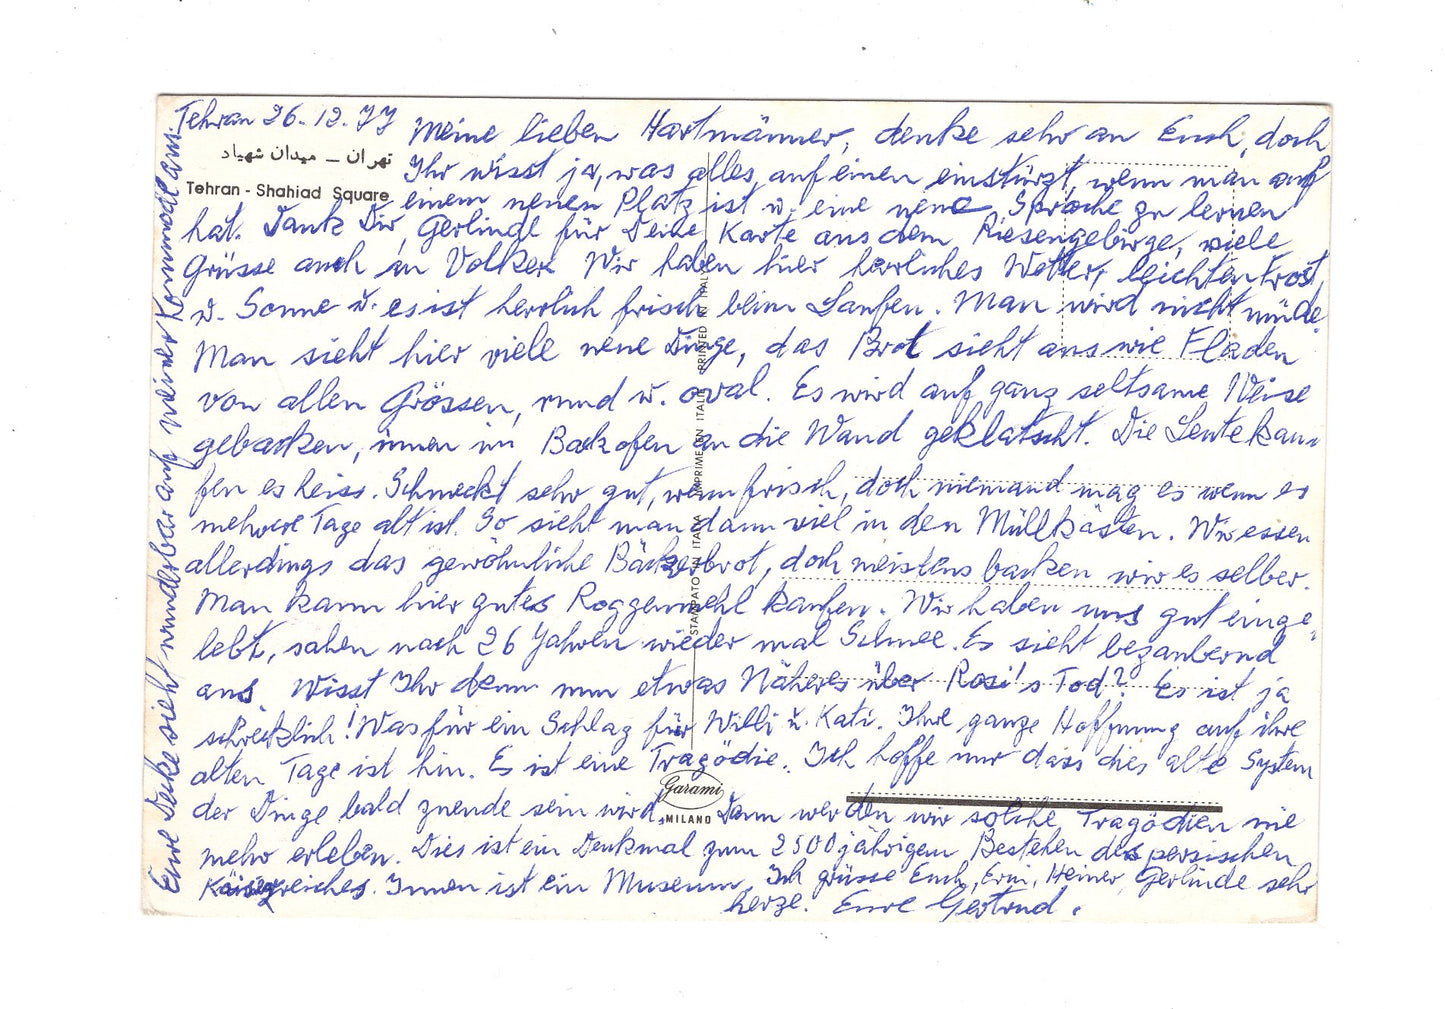 Tehran 26.12.77
تهران – میدان شهیاد
Tehran - Shahiad Square
Meine lieben Hartmänner, denke sehr an Euch, doch
Ihr wisst ja, was alles auf einen einstürzt, wenn man auf
einem neuen Platz ist u. eine neue Sprache zu lernen
hat. Dank Dir, Gerlinde für Deine Karte aus dem Riesengebirge, viele
Grüsse auch an Volker. Wir haben hier herrliches Wetter, leichten Frost
u. Sonne u. es ist herrlich frisch beim Laufen. Man wird nicht müde.
Man sieht hier viele neue Dinge, das Brot sieht aus wie Fladen
von allen Grössen, rund u. oval. Es wird auf ganz seltsame Weise
gebacken, innen im Backofen an die Wand geklatscht. Die Leute kau-
fen es heiss. Schmeckt sehr gut, wenn frisch, doch niemand mag es wenn es
mehrere Tage alt ist. So sieht man dann viel in den Müllkästen. Wir essen
allerdings das gewöhnliche Bäckerbrot, doch meistens backen wir es selber.
Man kann hier gutes Roggenmehl kaufen. Wir haben uns gut einge-
lebt, sahen nach 26 Jahren wieder mal Schnee. Es sieht bezaubernd
aus. Wisst Ihr denn nun etwas Näheres über Rosi's Tod? Es ist ja
schrecklich! Was für ein Schlag für Willi u. Kati. Ihre ganze Hoffnung auf ihre
alten Tage ist hin. Es ist eine Tragödie. Ich hoffe nur dass dies alte System
der Dinge bald zuende sein wird. Dann werden wir solche Tragödien nie
mehr erleben. Dies ist ein Denkmal zum 2500 jährigen Bestehen des persischen
Kaiserreiches. Innen ist ein Museum. Ich grüsse Euch, Erni, Heiner, Gerlinde sehr
herzl. Eure Gertrud.
Eure Decke sieht wunderbar auf meiner Kommode aus.
STAMPATO IN ITALIA IMPRIMÉ EN ITALIE PRINTED IN ITALY
Garami
MILANO